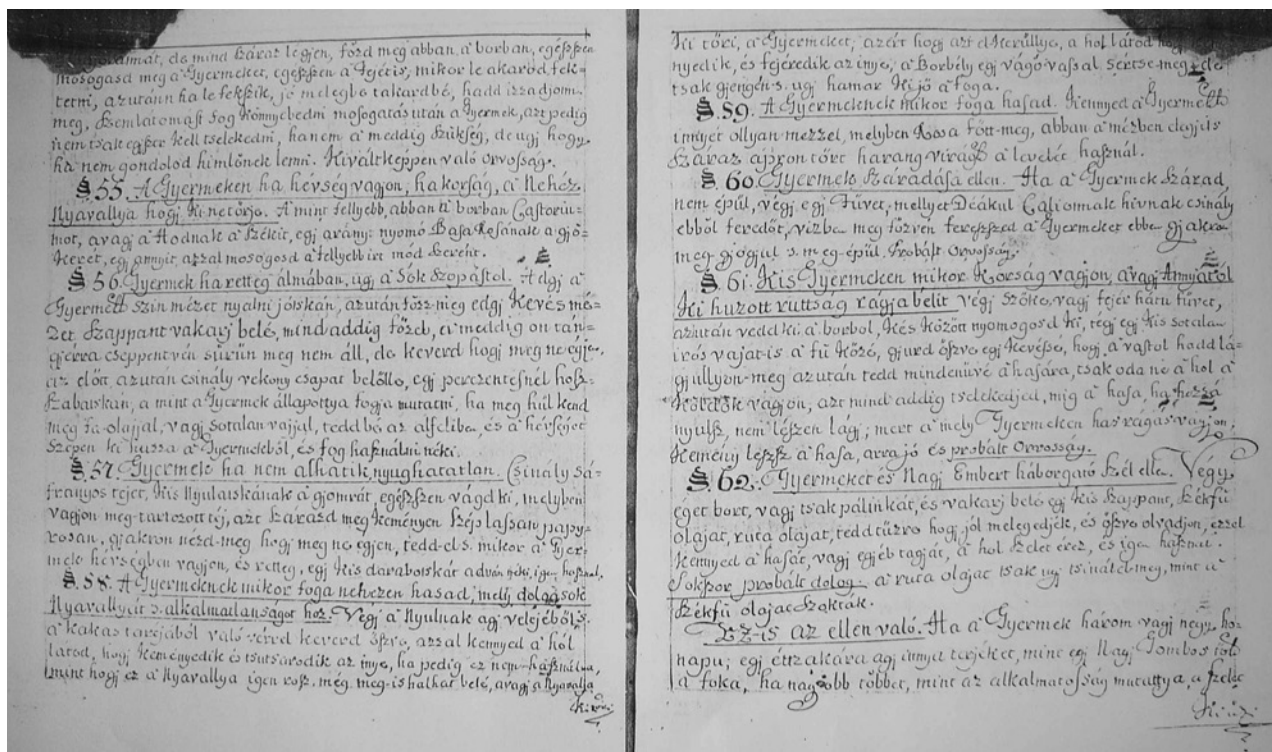 de mind száraz légjen, főzd meg abban a borban, egészszen
mosogasd meg a Gyermeket, egészszen a Fejétis, mikor le akarod fek-
tetni, azutánn ha le fekszik, jó melegbe takard bé, hadd izzadjonn
meg, szemlátomást fog könnyebedni mosogatás után a Gyermek, azt pedig
nem tsak egszer kell tselekedni, hanem a meddig szükség, de ugj hogy
ha nem gondolod himlőnek lenni. Kiváltképpen való orvosság.
§. 55. A Gyermeken ha hévség vagjon, ha korság, a Nehéz
Nyavallya hogj ki ne törje. A mint fellyebb, abban a borban Castoriu-
mot, avagj a Hodnak a Székit, egj arány: nyomó Basa Rosának a gjö-
kerét, egj annyit, azzal mosogasd a fellyebb irt mód szerént.
§. 56. Gyermek ha retteg álmában, ugj a Sók Szopástol. Adgj a
Gyermek szin mézet nyalni jótskán, azután főzz-meg edgj kevés mé-
zet, szappant vakarj belé, mind addig főzed, a meddig on tán-
gjerra cseppentvén sürün meg nem áll, de keverd hogj meg ne égje,
az előtt azután csinálj vékony csapat belölle, egj perczentésnél hosz-
szabatskán, a mint a Gyermek állapottya fogja mutatni, ha meg hül kend
meg fa olajjal, vagj sotalan vajjul, tedd bé az alfeliben, és a hévséget
szépen ki huzza a Gyermekből, és fog használni néki.
§. 57. Gyermek ha nem alhatik, nyughatatlan. Csinálj Sá-
franyos tejet, Kis Nyulatskának a gjomrát, egészszen vágd ki, melyben
vagjon meg-tartozott téj, azt szárazd meg keményen szép lassan papy-
rosan, gjakron nézd-meg hogj meg ne égjen, tedd-el s. mikor a Gyer-
mek hévségben vagjon, és retteg, egj kis darabotskát adván néki, igen használ.
§. 58. A Gyermeknek mikor foga nehezen hasad, melj dolog sok
Nyavallyát s. alkalmatlanságot hoz. Végj a Nyulnak agj velejéből s.
a kakas taréjából való véred keverd öszve, azzal kennyed a hól
látod, hogj keményedik és tsutsarodik az inye, ha pedig ez nem-használna,
mint hogj ez a Nyavallya igen rosz, még meg-is halhat belé, avagj a Nyavalja
Ki töri, a Gyermeket, azért hogj azt elkerüllye, a hol látod hogj
nyedik, és fejéredik az inye, a Borbély egj vágó vassal sértse-meg, de
tsak gjengén s. ugj hamar ki jö a foga.
§. 59. A Gyermeknek mikor foga hasad. Kennyed a Gyermek
innyét ollyan mézzel, melyben Rosa fött-meg, abban a mézben elegjits
száraz aprón tört harang virág a levelét használ.
§. 60. Gyermek Száradása ellen. Ha a Gyermek szárad,
nem épül, végj egj Füvet, mellyet Deákul Galionnak hivnak csinálj
ebből feredöt, vizben meg főzvén feresszed a Gyermeket ebbe gjakron
meg-gjogjul s. meg-épül. Probált Orvosság.
§. 61. Kis Gyermeken mikor Korság vagjon, avagj Annyáról
Ki huzott ruttság rágja belit végj szöke, vagj fejér háru füvet,
azután vedd ki a borbol, Kés közöt nyomogosd ki, tégj egj kis sotalan
irós vajat-is a fü közé, gjurd öszve egj kevéssé, hogj a vastol hadd lá-
gjullyon-meg azután tedd mindenüvé a hasára, tsak oda ne a hol a
Köldök vagjon, azt mind addig tselekedjed, mig a hasa, ha hozzá
nyulsz, nem lészen lágj; mert a mely Gyermeken has rágás vagjon,
Kemény lészsz a hasa, arra jó és probált Orvosság.
§. 62. Gyermeket és Nagj Embert háborgató szél ellen. Végy
éget bort, vagj tsak pálinkát, és vakarj belé egj kis szappant, székfü
olajat, ruta olajat, tedd tüzre hogj jól melegedjék, és öszve olvadjon, ezzel
Kennyed a hasát, vagj egjéb tagját, a hol szelet érez, és igen használ.
Sokszor probált dolog. a ruta olajat tsak ugj tsináld-meg, mint a
székfü olajat szokták.
Ez-is az ellen való. Ha a Gyermek három vagj négy, hó-
napu; egj étzakára agj innya terjéket, mint egj Nagj Gombos tőt
a foka, ha nagjobb többet, mint az alkalmatosság mutattya, a szelet